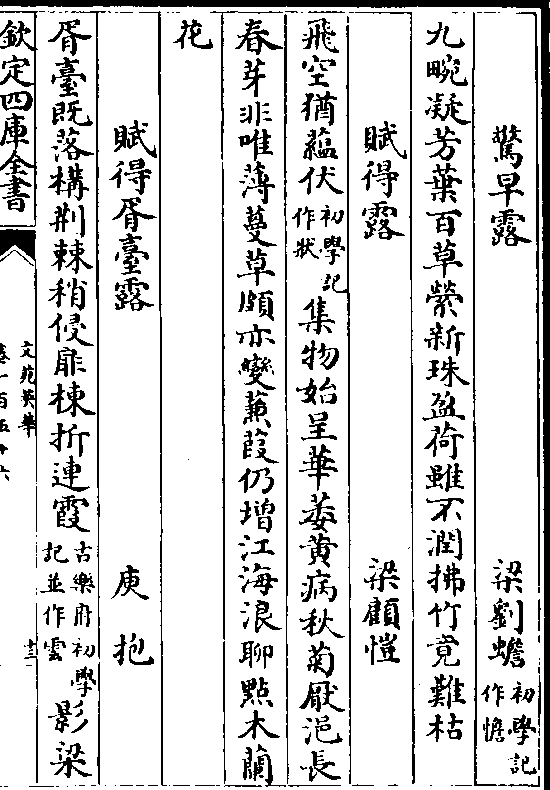 驚早露 梁劉蟾初學記作憺
九畹凝芳葉百草縈新珠盈荷雖不潤拂竹竟難枯
賦得露 梁顧愷
飛空猶蘊伏初學記作狀集物始呈華萎黃病秋菊厭浥長
春芽非唯薄蔓草頗亦變蒹葭仍增江海浪聊點木蘭
花
賦得胥臺露 庾抱
胥臺既落構荆棘稍侵扉棟折連霞古樂府初學記並作雲影梁
欽定四庫全書
文苑英華
卷一百五十六
十三